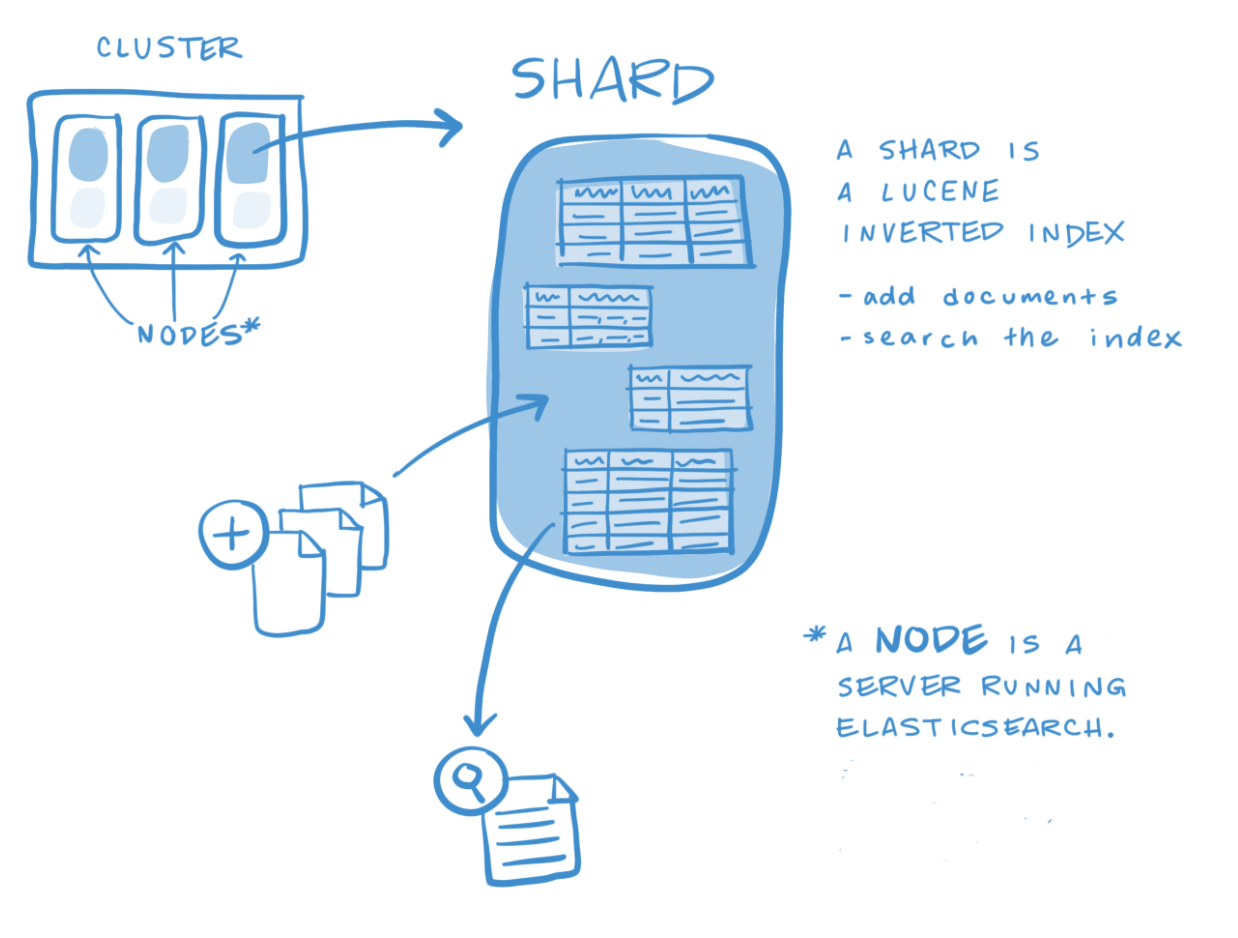 CLUSTER
NODES*
SHARD
A SHARD IS
A LUCENE
INVERTED INDEX
- add documents
- search the index
* A NODE IS A
SERVER RUNNING
ELASTICSEARCH.